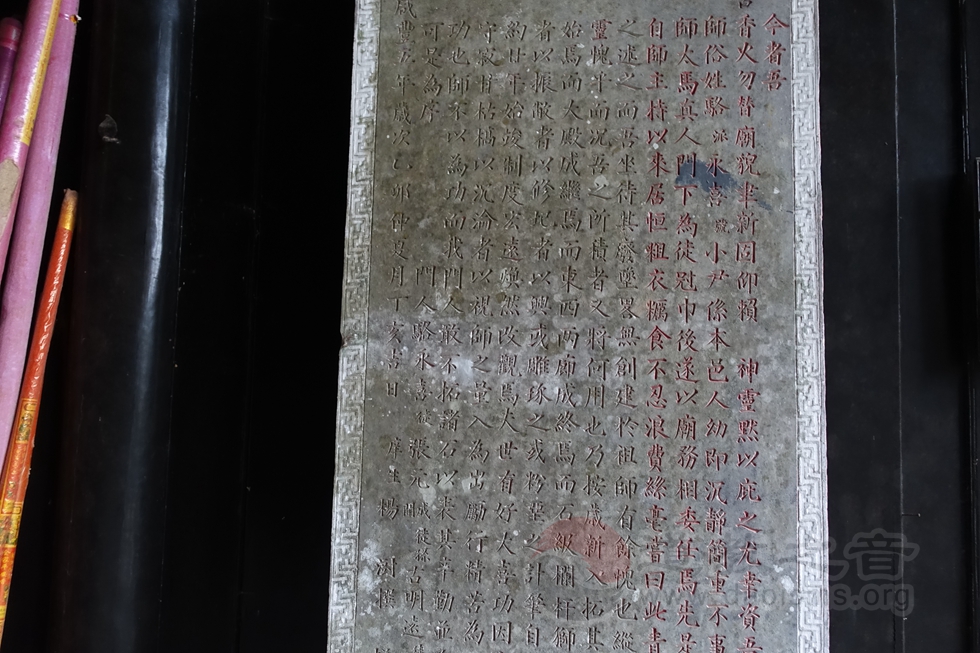 今者吾
香火勿替廟貌聿新固仰賴　神靈默以庇之尤幸資吾
師俗姓駱派永喜號小尹係本邑人幼即沉靜簡重不事
師太馬真人門下為徒冠巾後遂以廟務相委任焉先是
自師主持以來居恒粗衣糲食不忍浪費絲毫嘗曰此青
之述之而吾坐待其廢墜畧無創建於祖師有餘愧也縱
靈愧乎而況吾之所積者又將何用也乃按歲新入拓其
始焉而大殿成繼焉而東西兩廊成終焉而石級欄杆獅
者以振敝者以修圮者以興或雕琢之或粉堊之計肇自
約廿年始竣制度宏遠煥然改觀焉夫世有好大喜功因
守寂甘枯槁以沉淪者以視師之量入為出勵行精善為
功也師不以為功而我門人敢不拓諸石以表其辛勤並
可是為序
門人駱永喜徒張元 徒孫古明遠
咸豐五年歲次乙卯仲夏月丁亥吉日　庠生楊　樹
www.daoisms.org